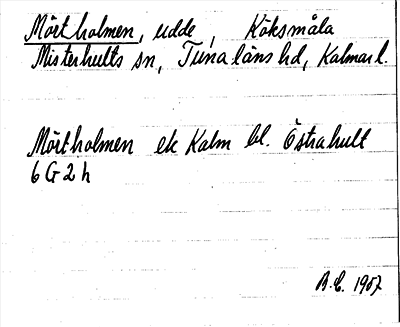 Mörtholmen, udde, Köksmåla
Misterhults sn, Tunaläns hd, Kalmar l.
Mörtholmen ek Kalm bl. Östrahult
6 G 2 h
B.E. 1957